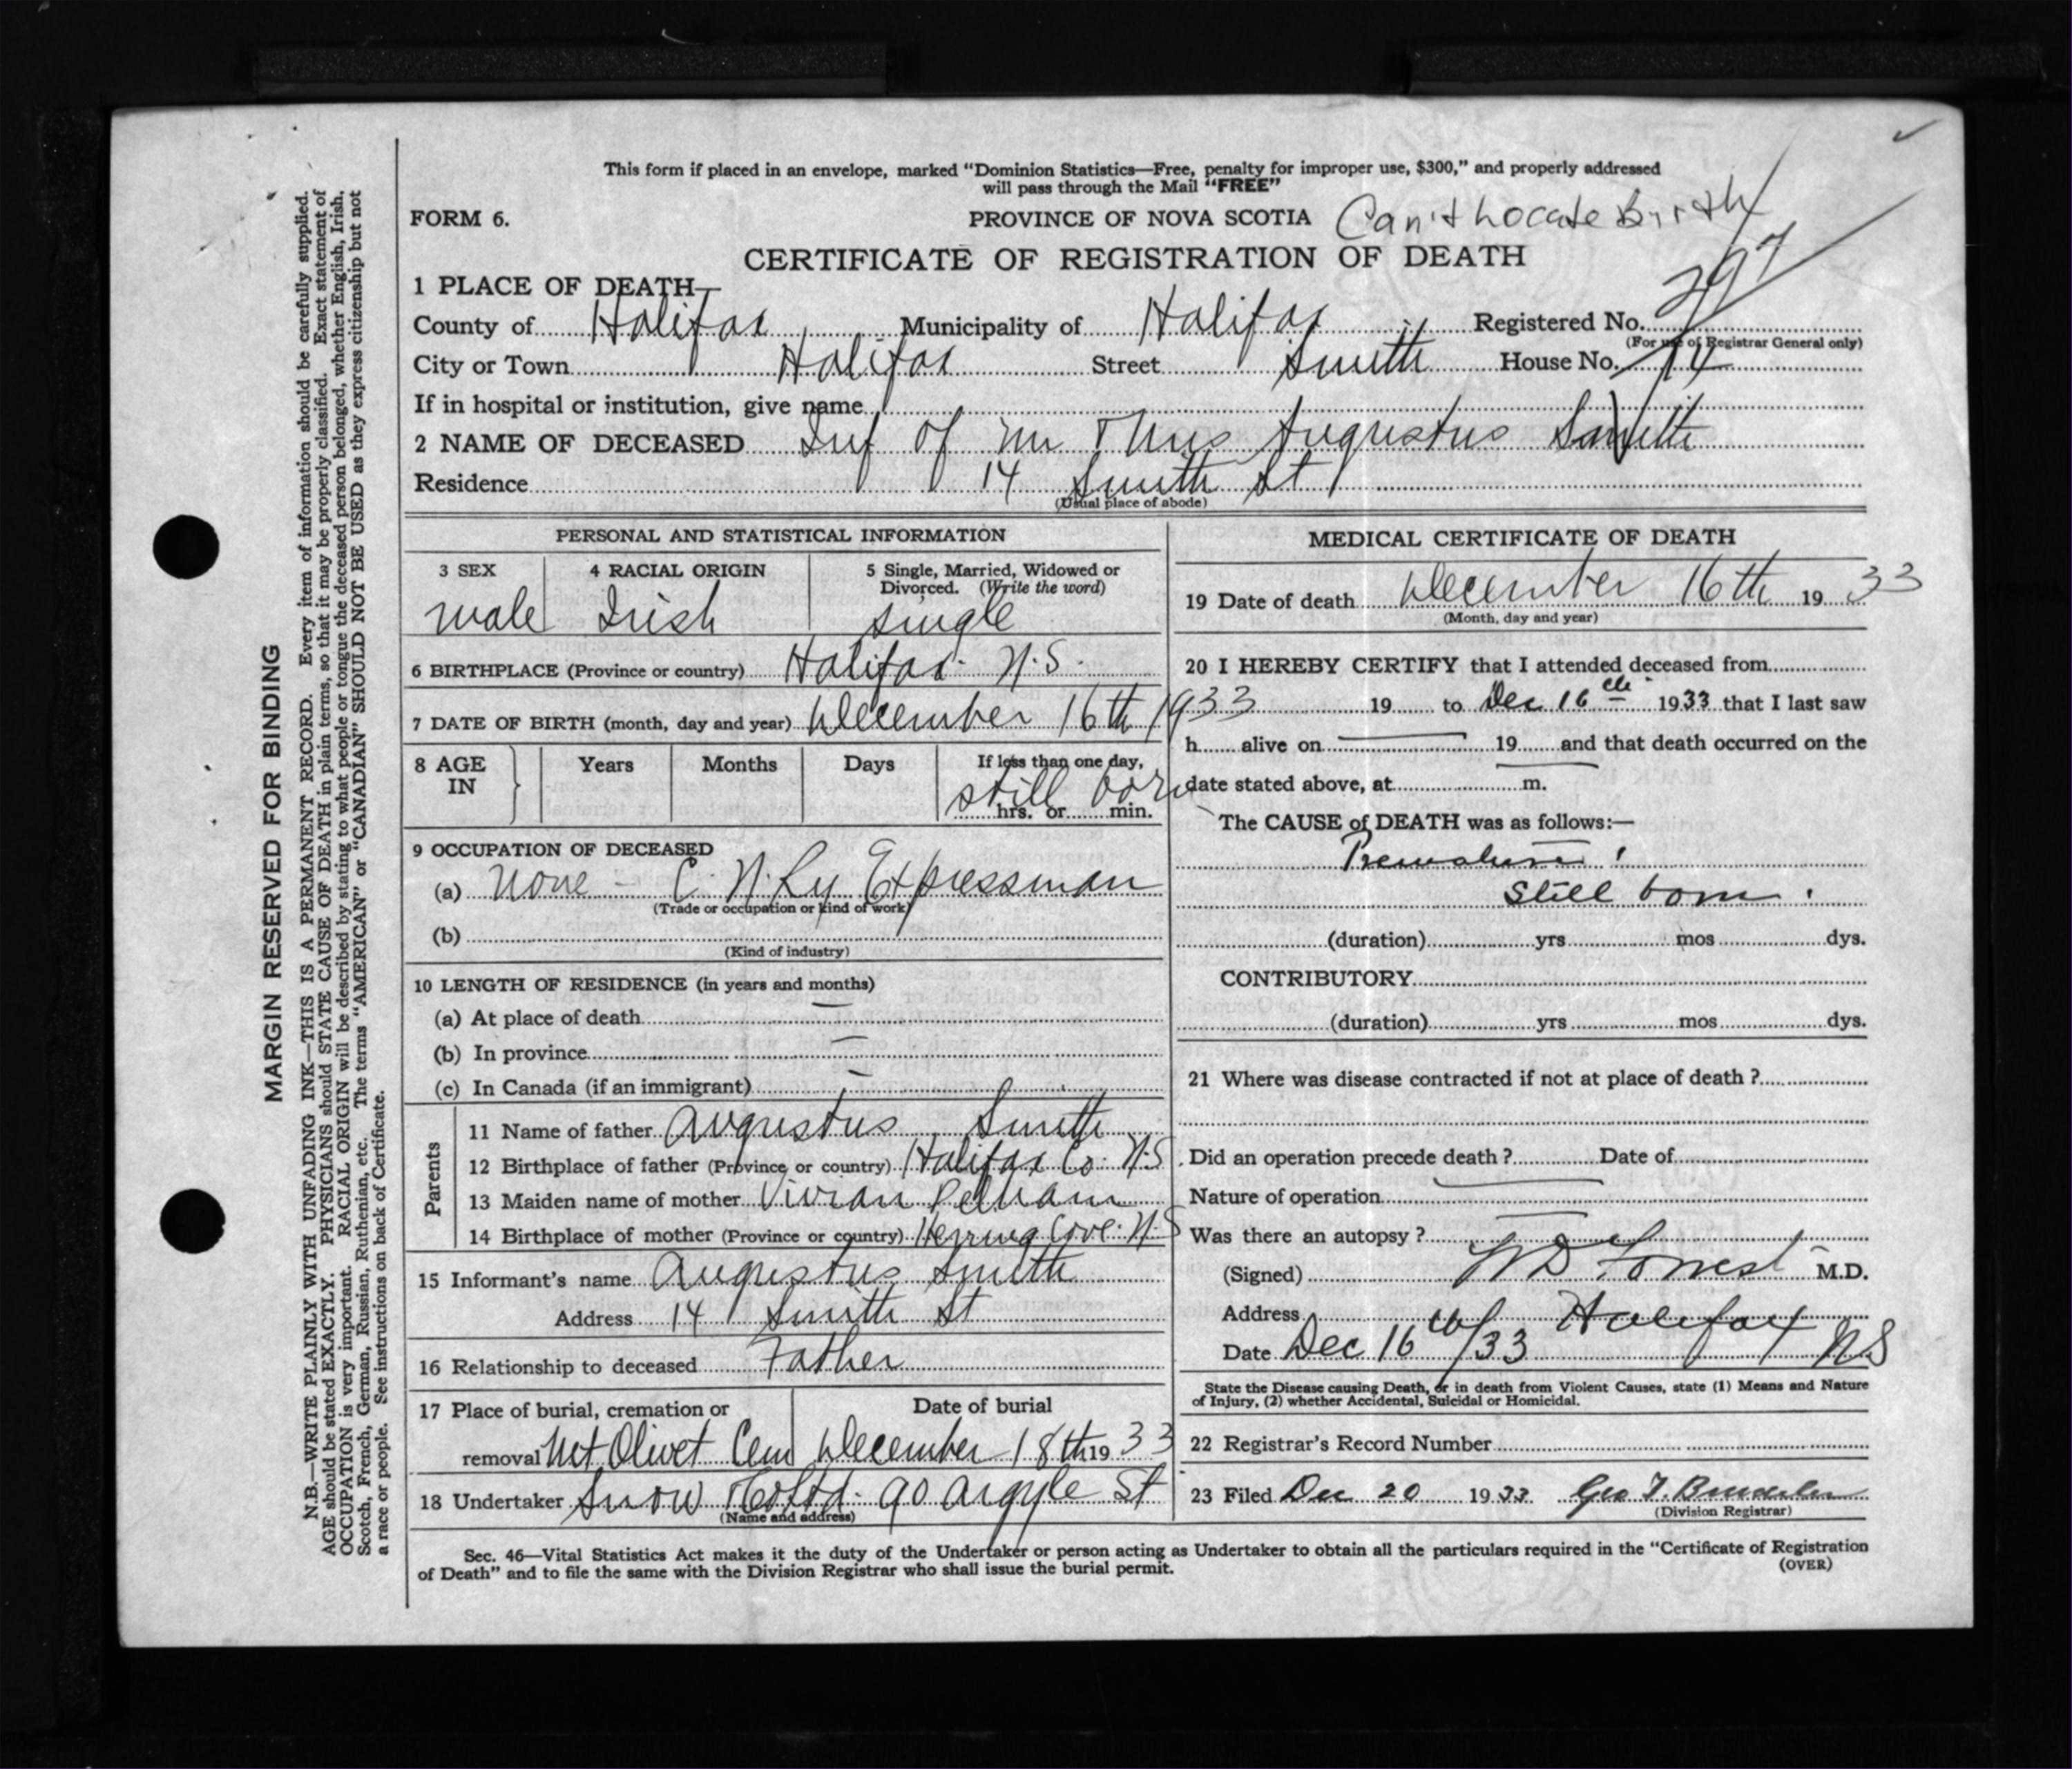 This form if placed in an envelope, marked “Dominion Statistics—Free, penalty for improper use, $300,” and properly addressed
will pass through the Mail “FREE”
FORM 6.
PROVINCE OF NOVA SCOTIA Can't Locate Birth
CERTIFICATE OF REGISTRATION OF DEATH
1 PLACE OF DEATH—
County of Halifax Municipality of Halifax Registered No. 297
(For use of Registrar General only)
City or Town Halifax Street Smith House No. 14
If in hospital or institution, give name
2 NAME OF DECEASED Inf of Mr & Mrs Augustus Smith
Residence 14 Smith St
(Usual place of abode)
PERSONAL AND STATISTICAL INFORMATION
3 SEX 4 RACIAL ORIGIN 5 Single, Married, Widowed or
Divorced. (Write the word)
male Irish single
6 BIRTHPLACE (Province or country) Halifax N.S.
7 DATE OF BIRTH (month, day and year) December 16th 1933
8 AGE
IN
Years Months Days If less than one day,
still born
hrs. or min.
9 OCCUPATION OF DECEASED
(a) None - C. N. Ry Expressman
(Trade or occupation or kind of work)
(b)
(Kind of industry)
10 LENGTH OF RESIDENCE (in years and months)
(a) At place of death —
(b) In province —
(c) In Canada (if an immigrant) —
Parents
11 Name of father Augustus Smith
12 Birthplace of father (Province or country) Halifax Co. N.S.
13 Maiden name of mother Vivian Pelham
14 Birthplace of mother (Province or country) Herring Cove. N.S
15 Informant's name Augustus Smith
Address 14 Smith St
16 Relationship to deceased Father
17 Place of burial, cremation or Date of burial
removal Mt Olivet Cem December 18th 1933
18 Undertaker Snow & Co Ltd. 90 Argyle St
(Name and address)
MEDICAL CERTIFICATE OF DEATH
19 Date of death December 16th 1933
(Month, day and year)
20 I HEREBY CERTIFY that I attended deceased from
19 to Dec 16th 1933 that I last saw
h alive on — 19 and that death occurred on the
date stated above, at — m.
The CAUSE of DEATH was as follows:—
Premature !
Still born .
(duration) yrs mos dys.
CONTRIBUTORY
(duration) yrs mos dys.
21 Where was disease contracted if not at place of death ?
Did an operation precede death ? Date of
Nature of operation —
Was there an autopsy ? —
(Signed) W D Forrest M.D.
Address Halifax NS
Date Dec 16th/33
State the Disease causing Death, or in death from Violent Causes, state (1) Means and Nature
of Injury, (2) whether Accidental, Suicidal or Homicidal.
22 Registrar's Record Number
23 Filed Dec 20 1933 Geo T.
(Division Registrar)
Sec. 46—Vital Statistics Act makes it the duty of the Undertaker or person acting as Undertaker to obtain all the particulars required in the “Certificate of Registration
of Death” and to file the same with the Division Registrar who shall issue the burial permit.
(OVER)
MARGIN RESERVED FOR BINDING
N.B.—WRITE PLAINLY WITH UNFADING INK—THIS IS A PERMANENT RECORD. Every item of information should be carefully supplied.
AGE should be stated EXACTLY. PHYSICIANS should STATE CAUSE OF DEATH in plain terms, so that it may be properly classified. Exact statement of
OCCUPATION is very important. RACIAL ORIGIN will be described by stating to what people or tongue the deceased person belonged, whether English, Irish,
Scotch, French, German, Russian, Ruthenian, etc. The terms “AMERICAN” or “CANADIAN” SHOULD NOT BE USED as they express citizenship but not
a race or people. See instructions on back of Certificate.